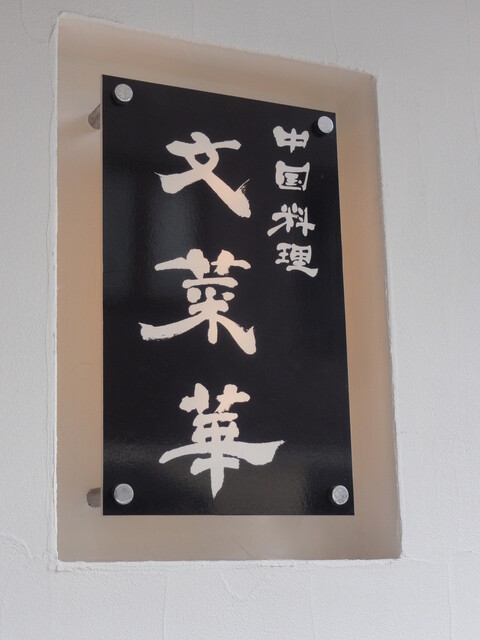 中国料理
文菜華